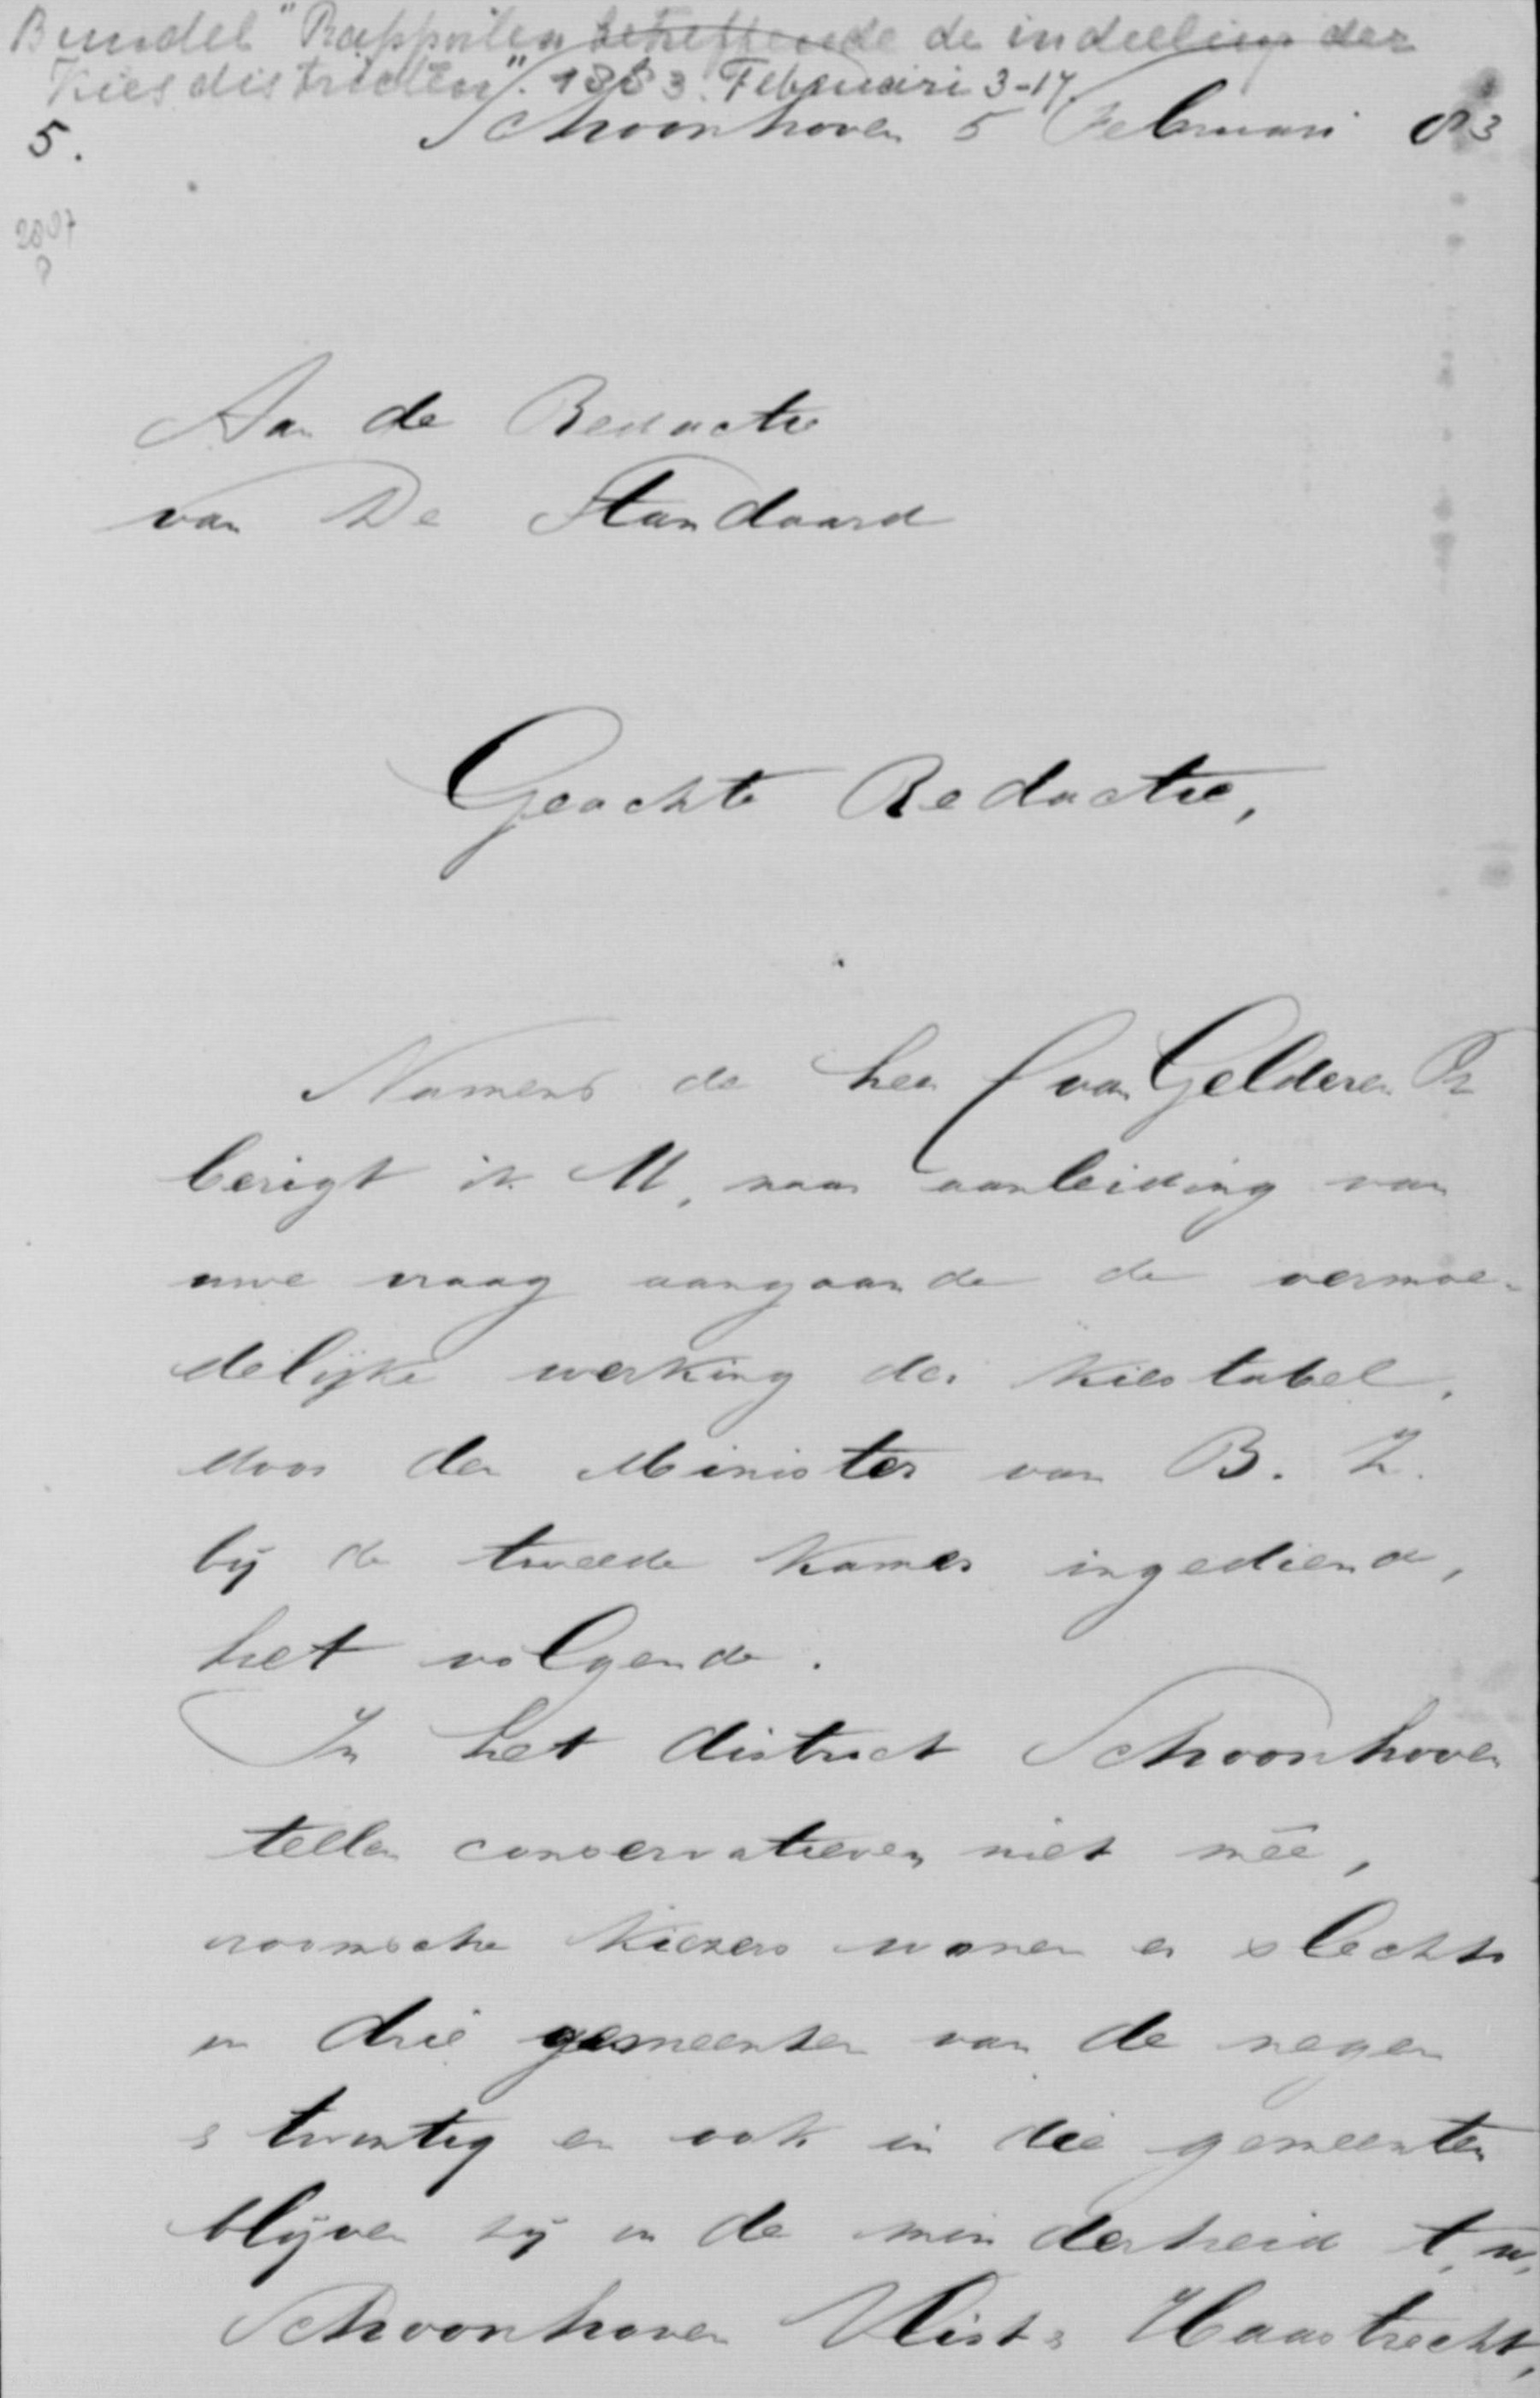 Bundel "Rapporten betreffende de indeeling der
Kiesdistricten". 1883. Februari 3-17.
5. Schoonhoven 5 Februari 83
Aan de Redactie
van De Standaard
Geachte Redactie,
Namens de heer C van Gelderen Pz
berigt ik U, naar aanleiding van
uwe vraag aangaande de vermoe-
delijke werking der kiestabel,
door den Minister van B. Z.
bij de tweede Kamer ingediend,
het volgende.
In het district Schoonhoven
tellen conservatieven niet meê,
roomsche kiezers wonen er slechts
in drie gemeenten van de negen
& twintig en ook in die gemeenten
blijven zij in de minderheid t. w.
Schoonhoven Vlist & Haastrecht,